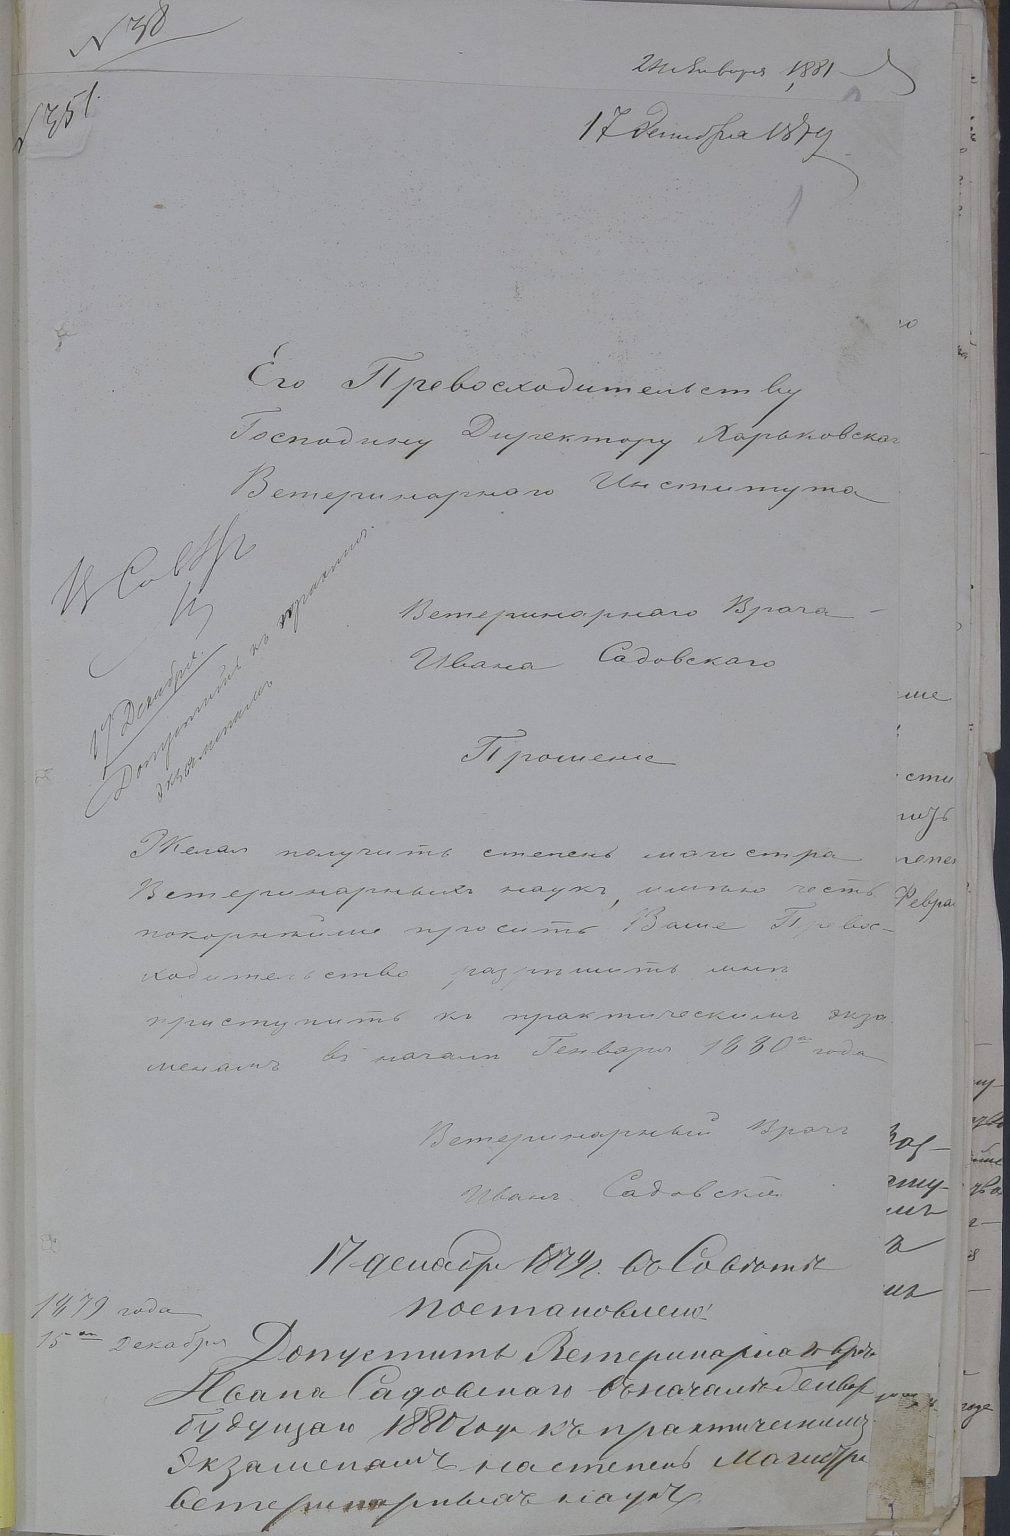 № 38
24 Января 1881
№ 351.
17 Декабря 1879
1
Его Превосходительству
Господину Директору Харьковскаг
Ветеринарнаго Института
Въ Совѣтъ
17 Декабря.
Допустить къ практич.
экзаменамъ
Ветеринарнаго Врача
Ивана Садовскаго
Прошение
Желая получить степень магистра
Ветеринарныхъ наукъ, имѣю честь
покорнѣйше просить Ваше Превос-
ходительство разрѣшить мнѣ
приступить къ практическимъ экза
менамъ въ началѣ Генваря 1880го года
Ветеринарный Врачъ
Иванъ Садовский
1879 года
15го Декабря
17 декабр 1879г. въ Совѣтѣ
постановлено:
Допустить Ветеринарнаго врача
Ивана Садовскаго въ началѣ Генвар
будущаго 1880 года къ практическимъ
экзаменамъ на степень Магистра
ветеринарныхъ наукъ.